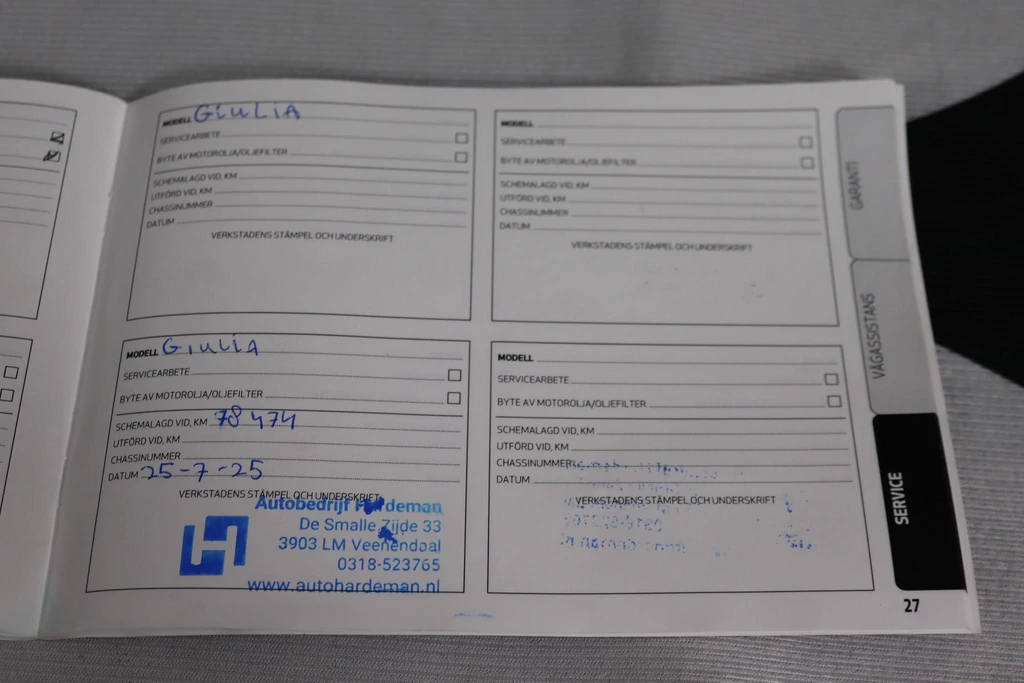 MODELL GIULIA
SERVICEARBETE
BYTE AV MOTOROLJA/OLJEFILTER
SCHEMALAGD VID, KM
UTFÖRD VID, KM
CHASSINUMMER
DATUM
VERKSTADENS STÄMPEL OCH UNDERSKRIFT
MODELL
SERVICEARBETE
BYTE AV MOTOROLJA/OLJEFILTER
SCHEMALAGD VID, KM
UTFÖRD VID, KM
CHASSINUMMER
DATUM
VERKSTADENS STÄMPEL OCH UNDERSKRIFT
MODELL GIULIA
SERVICEARBETE
BYTE AV MOTOROLJA/OLJEFILTER
SCHEMALAGD VID, KM 78 474
UTFÖRD VID, KM
CHASSINUMMER
DATUM 25-7-25
VERKSTADENS STÄMPEL OCH UNDERSKRIFT
Autobedrijf Hardeman
De Smalle Zijde 33
3903 LM Veenendaal
0318-523765
www.autohardeman.nl
MODELL
SERVICEARBETE
BYTE AV MOTOROLJA/OLJEFILTER
SCHEMALAGD VID, KM
UTFÖRD VID, KM
CHASSINUMMER
DATUM
VERKSTADENS STÄMPEL OCH UNDERSKRIFT
GARANTI
VÄGASSISTANS
SERVICE
27